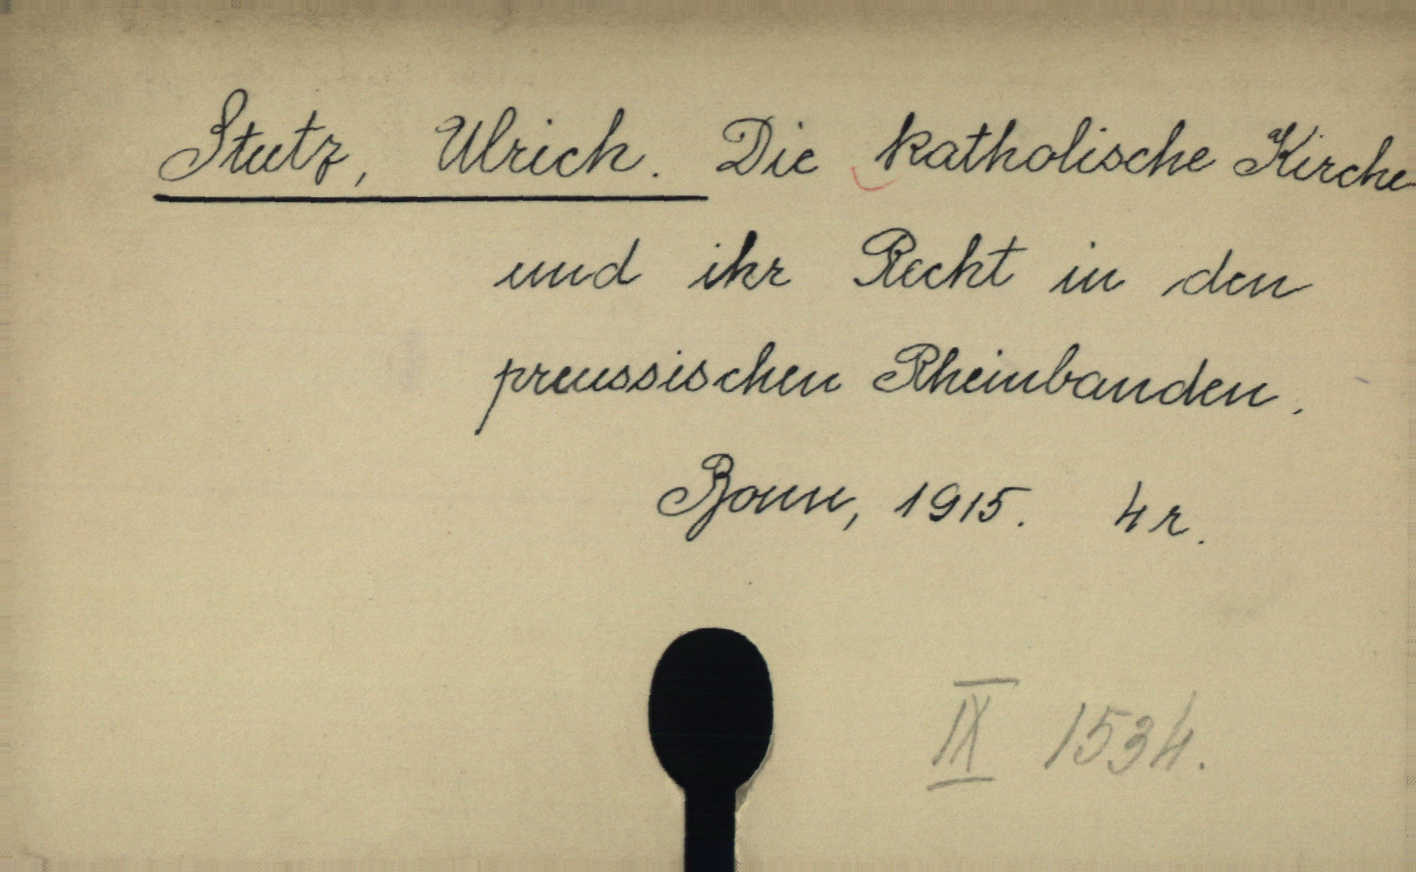 Stutz, Ulrich. Die katholische Kirche
und ihr Recht in den
preussischen Rheinbanden.
Bonn, 1915. 4r.
IX 1534.